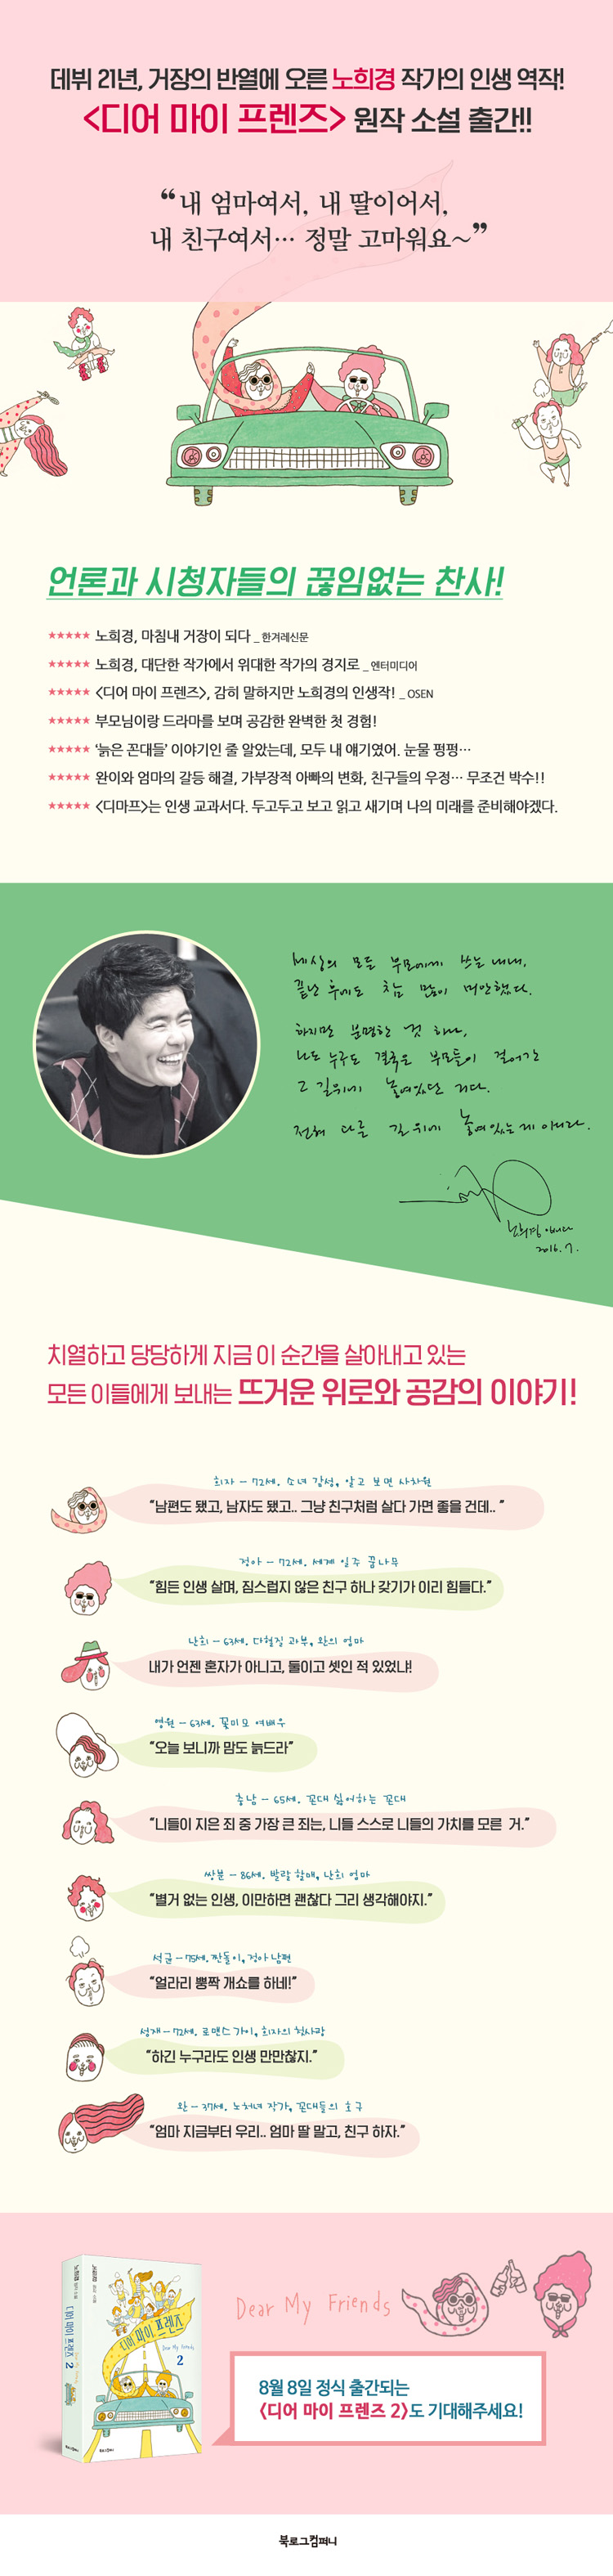 데뷔 21년, 거장의 반열에 오른 노희경 작가의 인생 역작!
<디어 마이 프렌즈> 원작 소설 출간!!
“내 엄마여서, 내 딸이어서,
내 친구여서… 정말 고마워요~”
언론과 시청자들의 끊임없는 찬사!
★★★★★ 노희경, 마침내 거장이 되다 _ 한겨레신문
★★★★★ 노희경, 대단한 작가에서 위대한 작가의 경지로 _ 엔터미디어
★★★★★ <디어 마이 프렌즈>, 감히 말하지만 노희경의 인생작! _ OSEN
★★★★★ 부모님이랑 드라마를 보며 공감한 완벽한 첫 경험!
★★★★★ ‘늙은 꼰대들’ 이야기인 줄 알았는데, 모두 내 얘기였어. 눈물 펑펑…
★★★★★ 완이와 엄마의 갈등 해결, 가부장적 아빠의 변화, 친구들의 우정… 무조건 박수!!
★★★★★ <디마프>는 인생 교과서다. 두고두고 보고 읽고 새기며 나의 미래를 준비해야겠다.
세상의 모든 부모에게 쓰는 내내,
끝난 후에도 참 많이 미안했다.
하지만 분명한 것 하나,
나도 누구도 결국은 부모들이 걸어간
그 길위에 놓여있단 거다.
전혀 다른 길위에 놓여있는게 아니라.
노희경
2016. 7.
치열하고 당당하게 지금 이 순간을 살아내고 있는
모든 이들에게 보내는 뜨거운 위로와 공감의 이야기!
희자 - 72세. 소녀 감성, 알고 보면 사차원
“남편도 됐고, 남자도 됐고.. 그냥 친구처럼 살다 가면 좋을 건데.. ”
정아 - 72세. 세계 일주 꿈나무
“힘든 인생 살며, 짐스럽지 않은 친구 하나 갖기가 이리 힘들다.”
난희 - 63세. 다혈질 과부, 완의 엄마
내가 언젠 혼자가 아니고, 둘이고 셋인 적 있었냐!
영원 - 63세. 꽃미모 여배우
“오늘 보니까 맘도 늙드라”
충남 - 65세. 꼰대 싫어하는 꼰대
“니들이 지은 죄 중 가장 큰 죄는, 니들 스스로 니들의 가치를 모른 거.”
쌍분 - 86세. 발랄 할매, 난희 엄마
“별거 없는 인생, 이만하면 괜찮다 그리 생각해야지.”
석균 - 75세. 짠돌이, 정아 남편
“얼라리 뽕짝 개쇼를 하네!”
성재 - 72세. 로맨스 가이, 희자의 첫사랑
“하긴 누구라도 인생 만만찮지.”
완 - 37세. 노처녀 작가, 꼰대들의 호구
“엄마 지금부터 우리.. 엄마 딸 말고, 친구 하자.”
디어 마이 프렌즈 2
디어 마이 프렌즈
Dear My Friends
2
Dear My Friends
8월 8일 정식 출간되는
<디어 마이 프렌즈 2>도 기대해주세요!
북로그컴퍼니